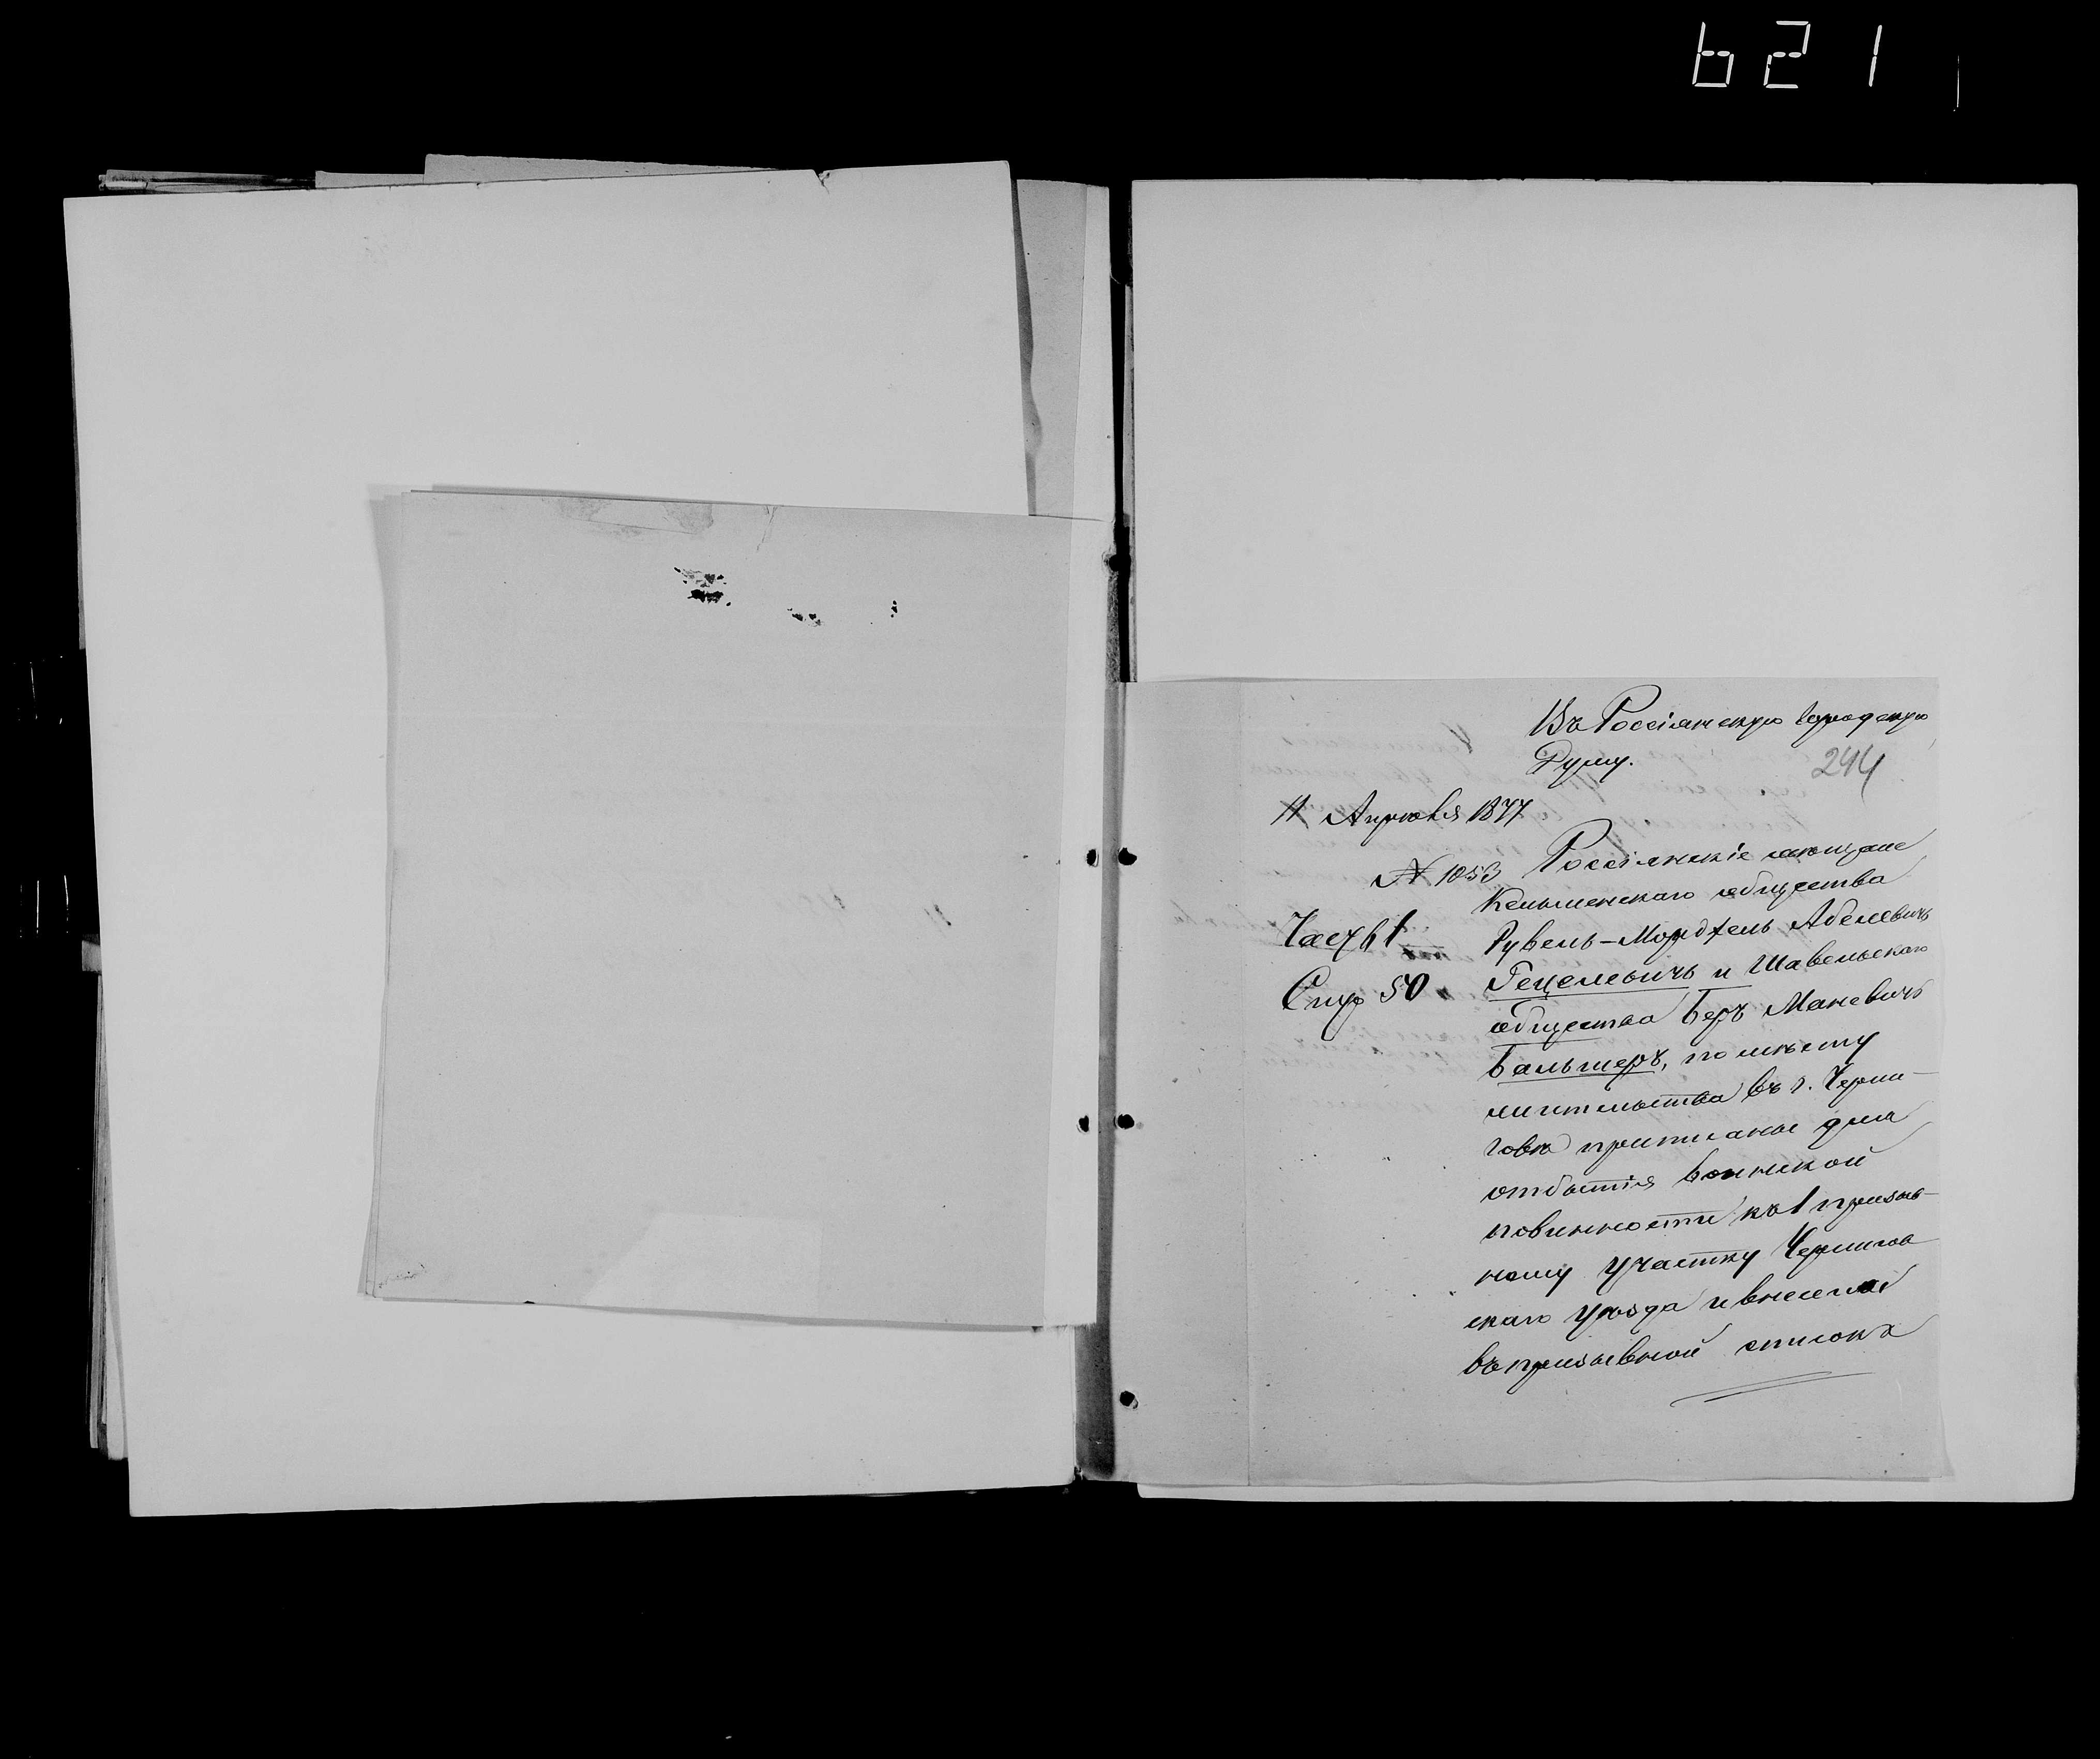 621
Въ Россіенскую Городскую
Думу.
244
11 Апрѣля 1877
№ 1053
Россіенскіе мѣщане
Кельменскаго общества
Часть 1
Рувель-Мордхель Абелевичъ
Стр 50
Гецелевичъ и Шавельскаго
общества Беръ Маневичъ
Бальшеръ, по мѣсту
жительства въ г. Черни-
говѣ приписаны для
отбытія воинской
повинности къ 1 призыв-
ному участку Чернигов
скаго уѣзда и внесены
въ призывной списокъ